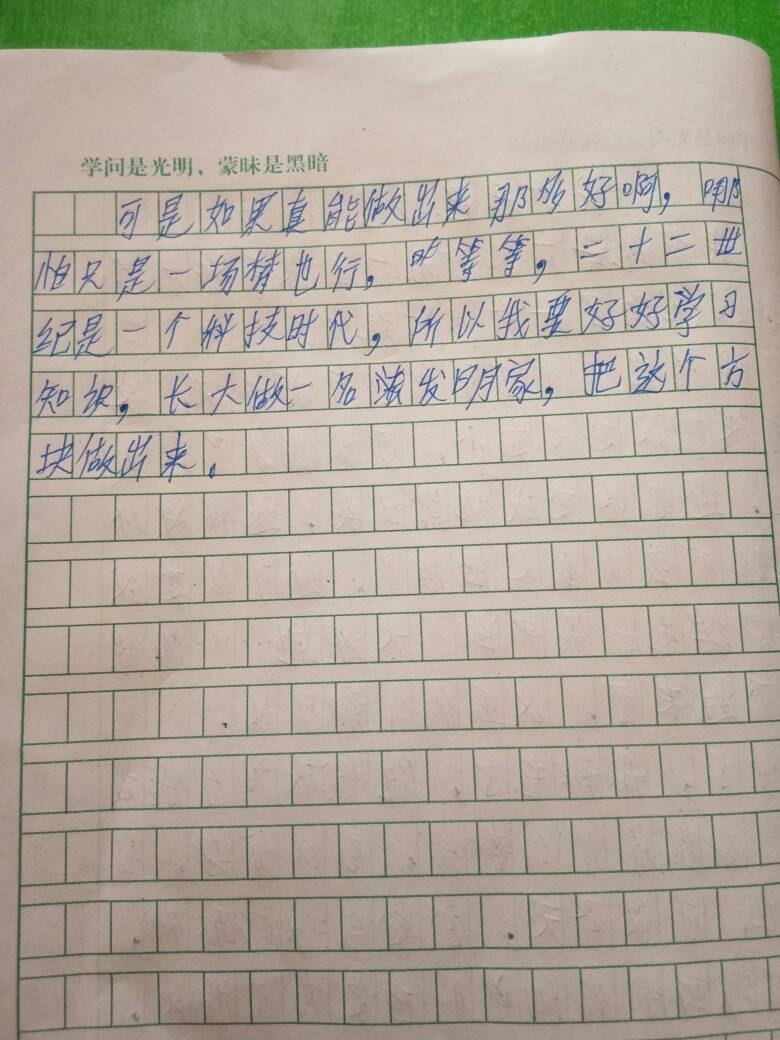 学问是光明，蒙昧是黑暗
可是如果真能做出来那多好啊，哪
怕只是一场梦也行。吖等等，二十二世
纪是一个科技时代，所以我要好好学习
知识，长大做一名发明家，把这个方
块做出来。